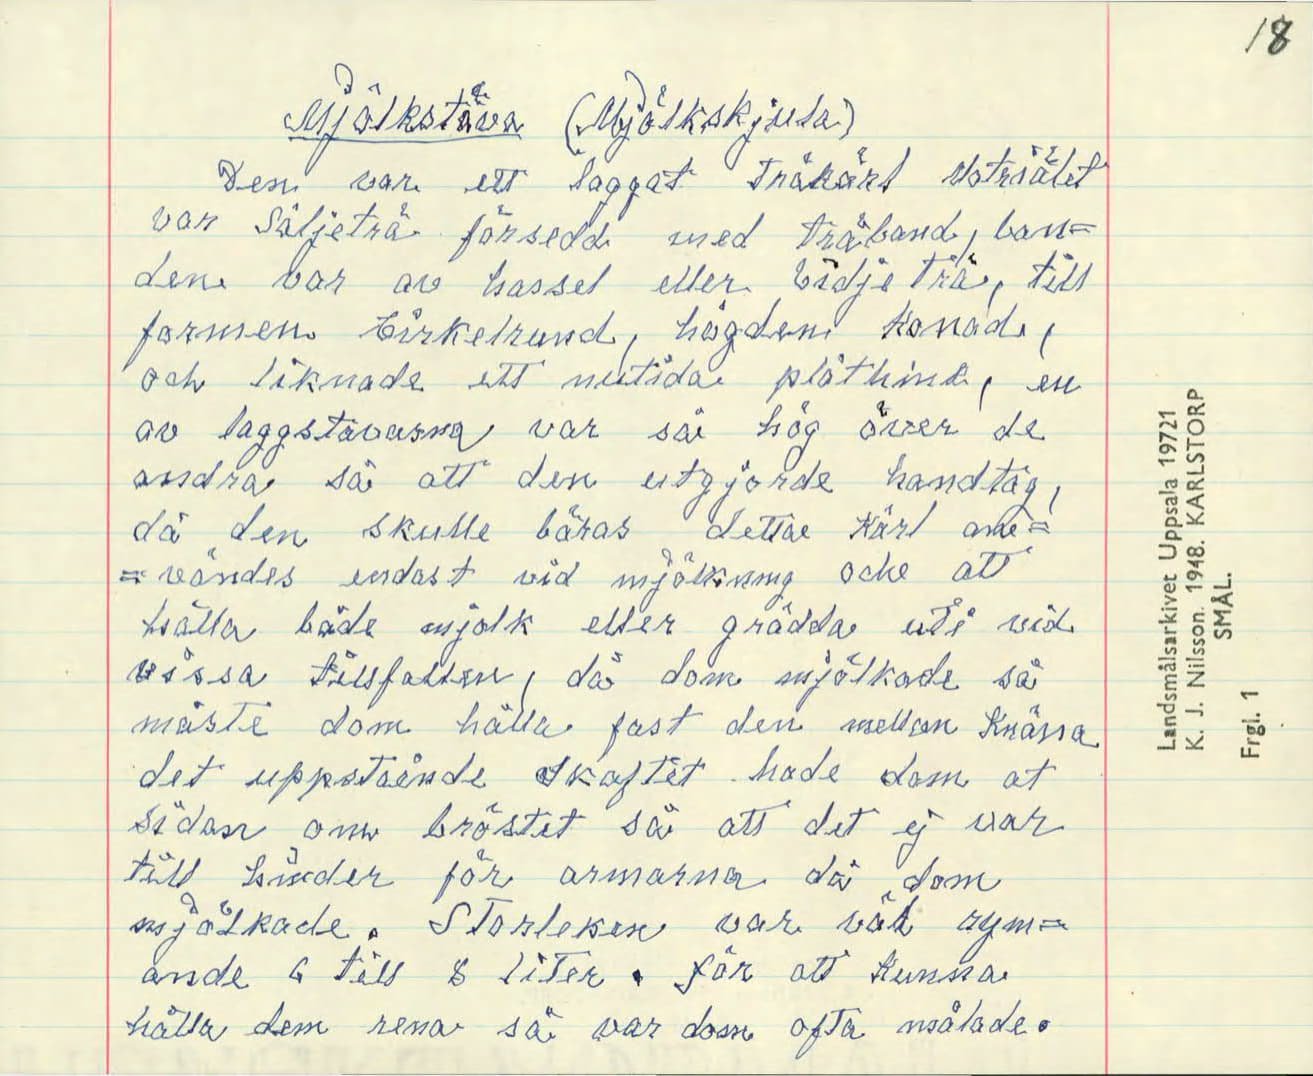 18
Mjölkstäva (Mjölkskjula)
Den var ett laggat träkärl Matriälet
var Säljeträ försedd med träband, ban=
den var av hassel eller Vidje trä, till
formen Cirkelrund, högden Konad,
och liknade ett nutida plåthink, en
av laggstavarna var så hög över de
andra så att den utgjorde handtag,
då den skulle bäras detta Kärl an=
=vändes endast vid mjölkning och att
hälla både mjölk eller grädda uti vid
vissa tillfällen, då dom mjölkade så
måste dom hålla fast den mellan Knäna
det uppstående Skaftet hade dom åt
sidan om bröstet så att det ej var
till hinder för armarna då dom
mjölkade. Storleken var väl rym=
ande 6 till 8 liter. för att Kunna
hålla dem rena så var dom ofta målade.
Landsmålsarkivet Uppsala 19721
K. J. Nilsson. 1948. KARLSTORP
SMÅL.
Frgl. 1